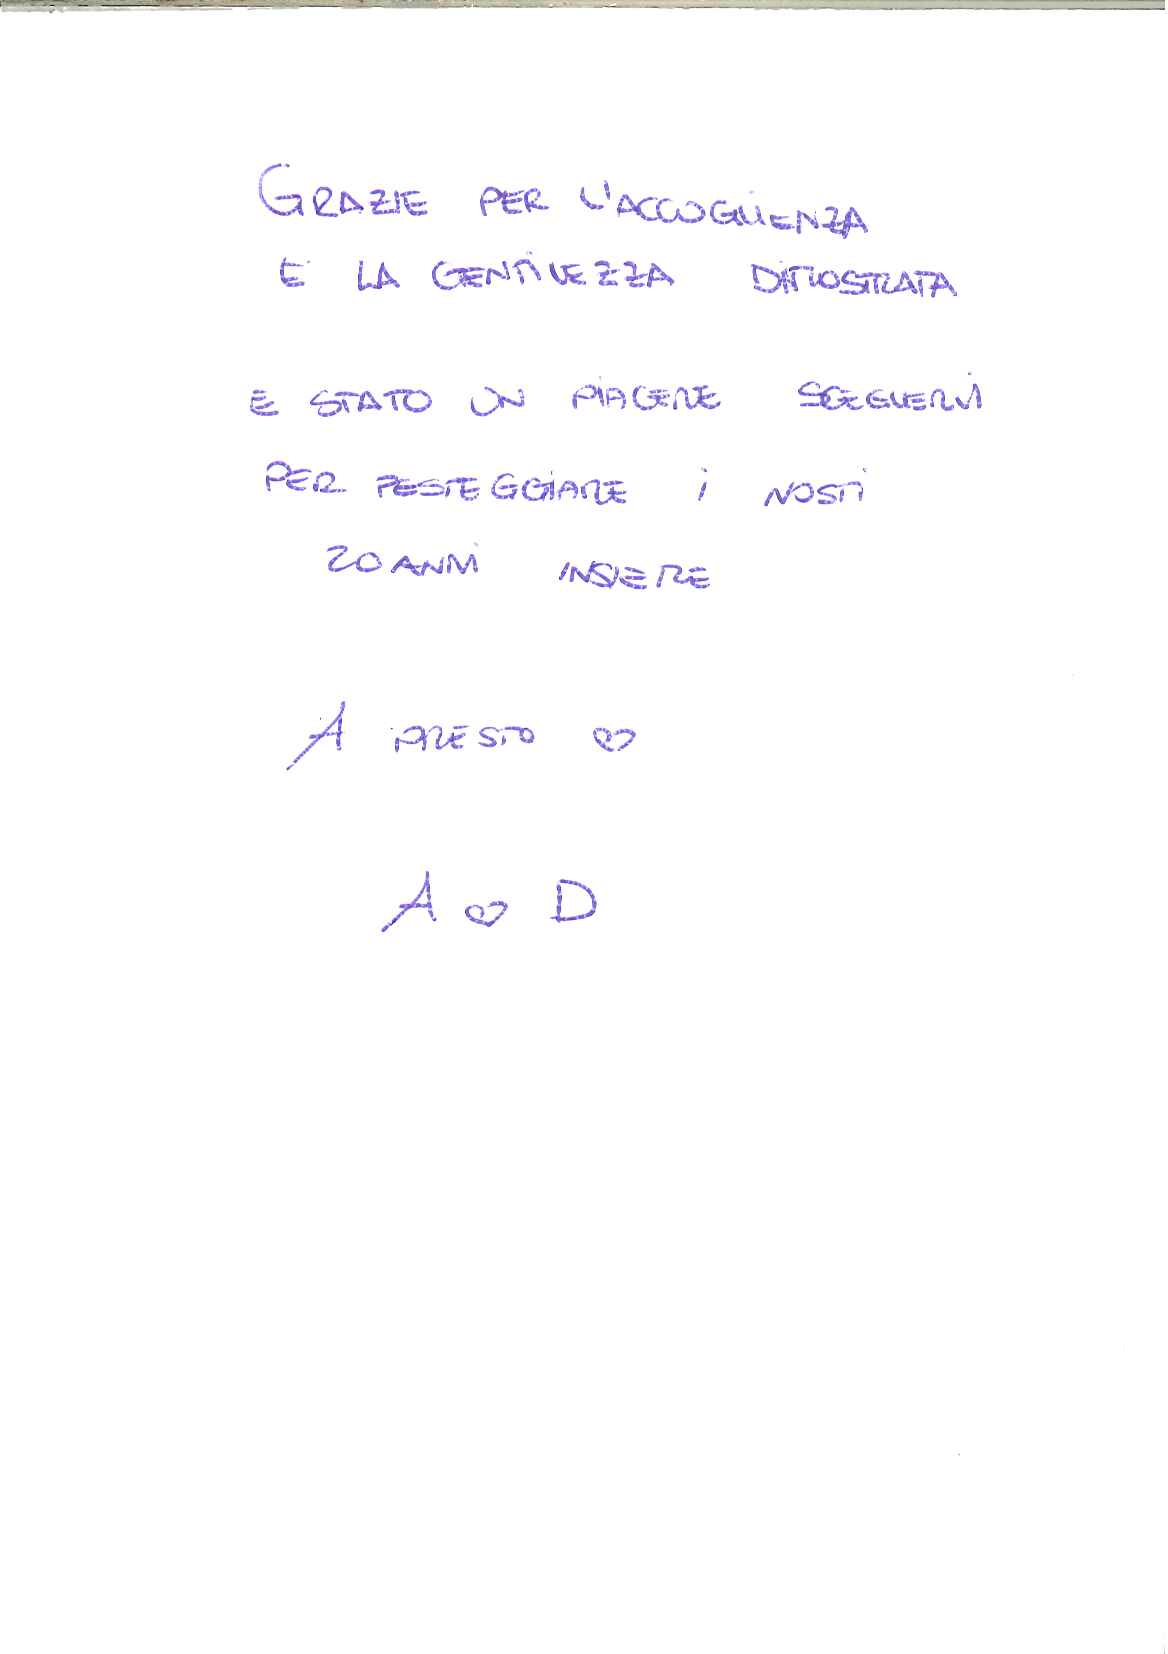 GRAZIE PER L'ACCOGLIENZA
E LA GENTILEZZA DIMOSTRATA
E STATO UN PIACERE SCEGLIERVI
PER FESTEGGIARE I NOSTI
20 ANNI INSIEME
A PRESTO ♡
A ♡ D